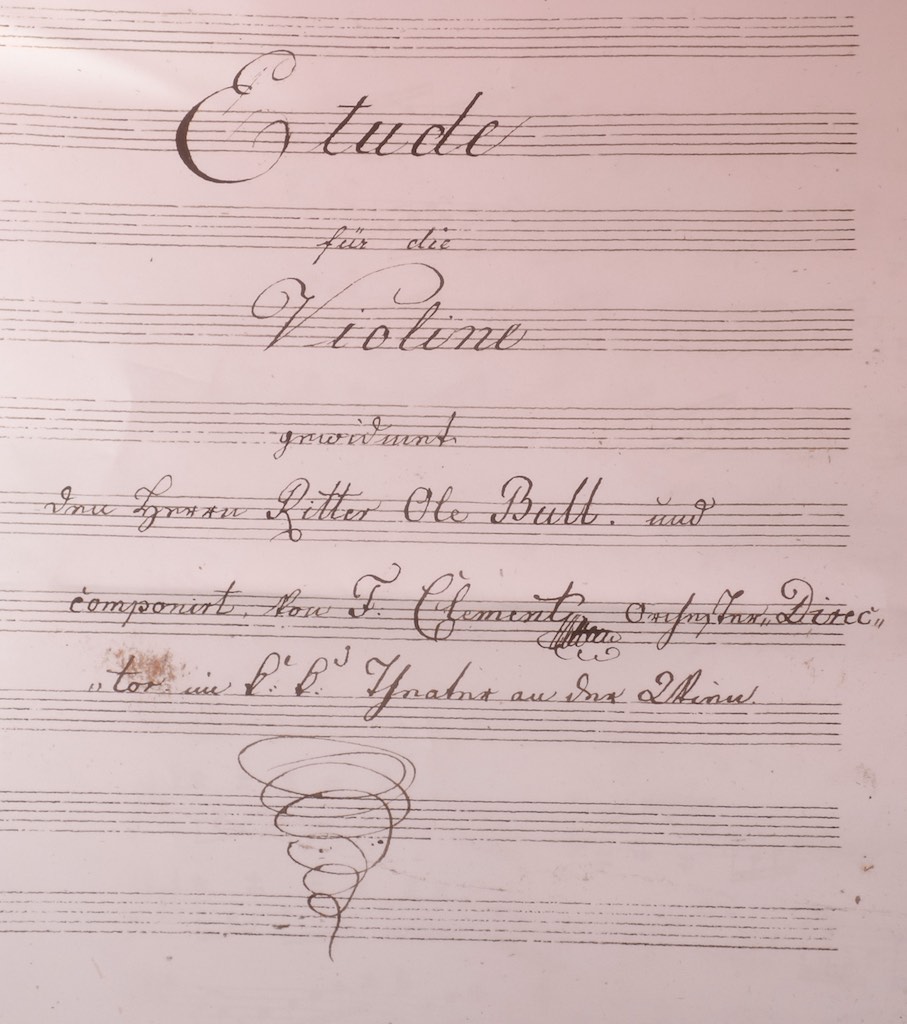 Etude
für die
Violine
gewidmet
den Herrn Ritter Ole Bull. und
componirt von F. Clement Orchester„Direc„
„tor im k: k: Theater an der Wien.